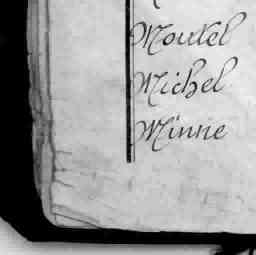 Moutel
Michel
Minne